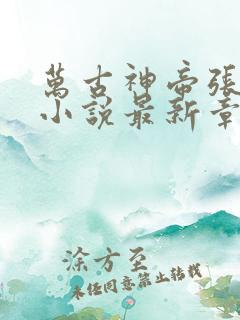 萬古神帝張
小說最新章
涂方至
未經同意禁止轉載